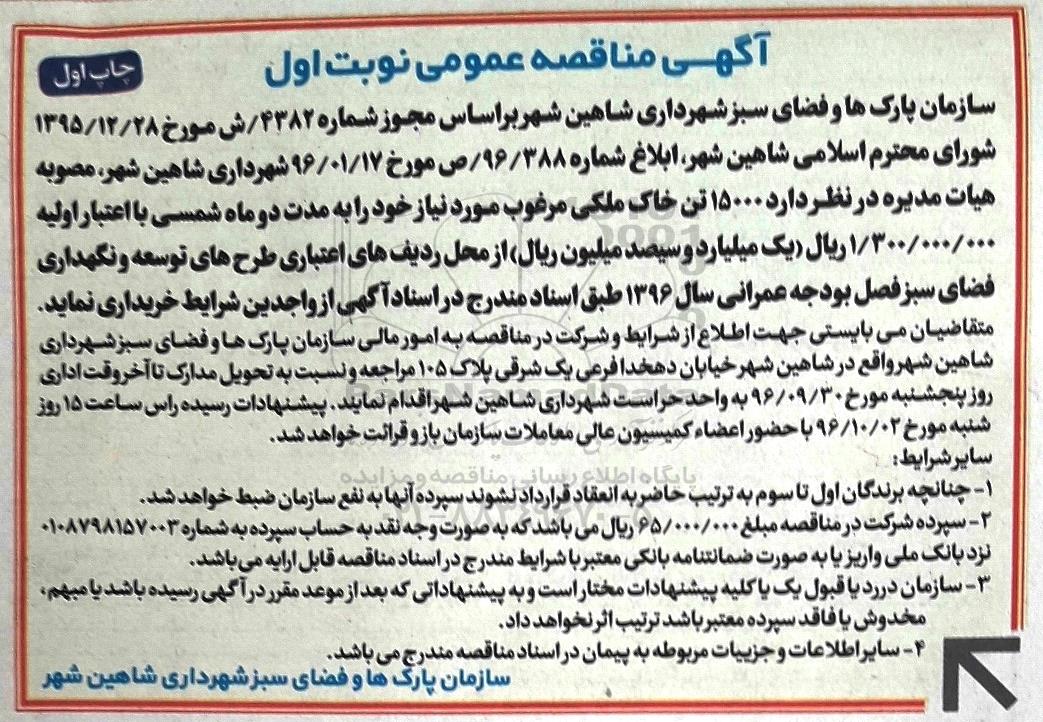 آگهی مناقصه عمومی نوبت اول
چاپ اول
سازمان پارک ها و فضای سبز شهرداری شاهین شهر براساس مجوز شماره ۴۳۸۲/ش مورخ ۱۳۹۵/۱۲/۲۸
شورای محترم اسلامی شاهین شهر، ابلاغ شماره ۹۶/۳۸۸/ص مورخ ۹۶/۰۱/۱۷ شهرداری شاهین شهر، مصوبه
هیات مدیره در نظر دارد ۱۵۰۰۰ تن خاک ملکی مرغوب مورد نیاز خود را به مدت دو ماه شمسی با اعتبار اولیه
۱/۳۰۰/۰۰۰/۰۰۰ ریال (یک میلیارد و سیصد میلیون ریال) از محل ردیف های اعتباری طرح های توسعه و نگهداری
فضای سبز فصل بودجه عمرانی سال ۱۳۹۶ طبق اسناد مندرج در اسناد آگهی از واجدین شرایط خریداری نماید.
متقاضیان می بایستی جهت اطلاع از شرایط و شرکت در مناقصه به امور مالی سازمان پارک ها و فضای سبز شهرداری
شاهین شهر واقع در شاهین شهر خیابان دهخدا فرعی یک شرقی پلاک ۱۰۵ مراجعه و نسبت به تحویل مدارک تا آخر وقت اداری
روز پنجشنبه مورخ ۹۶/۰۹/۳۰ به واحد حراست شهرداری شاهین شهر اقدام نمایند. پیشنهادات رسیده راس ساعت ۱۵ روز
شنبه مورخ ۹۶/۱۰/۰۲ با حضور اعضاء کمیسیون عالی معاملات سازمان باز و قرائت خواهد شد.
سایر شرایط:
۱- چنانچه برندگان اول تا سوم به ترتیب حاضر به انعقاد قرارداد نشوند سپرده آنها به نفع سازمان ضبط خواهد شد.
۲- سپرده شرکت در مناقصه مبلغ ۶۵/۰۰۰/۰۰۰ ریال می باشد که به صورت وجه نقد به حساب سپرده به شماره ۰۱۰۸۷۹۸۱۵۷۰۰۳
نزد بانک ملی واریز یا به صورت ضمانتنامه بانکی معتبر با شرایط مندرج در اسناد مناقصه قابل ارایه می باشد.
۳- سازمان در رد یا قبول یک یا کلیه پیشنهادات مختار است و به پیشنهاداتی که بعد از موعد مقرر در آگهی رسیده باشد یا مبهم،
مخدوش یا فاقد سپرده معتبر باشد ترتیب اثر نخواهد داد.
۴- سایر اطلاعات و جزییات مربوطه به پیمان در اسناد مناقصه مندرج می باشد.
سازمان پارک ها و فضای سبز شهرداری شاهین شهر
پایگاه اطلاع رسانی مناقصه و مزایده